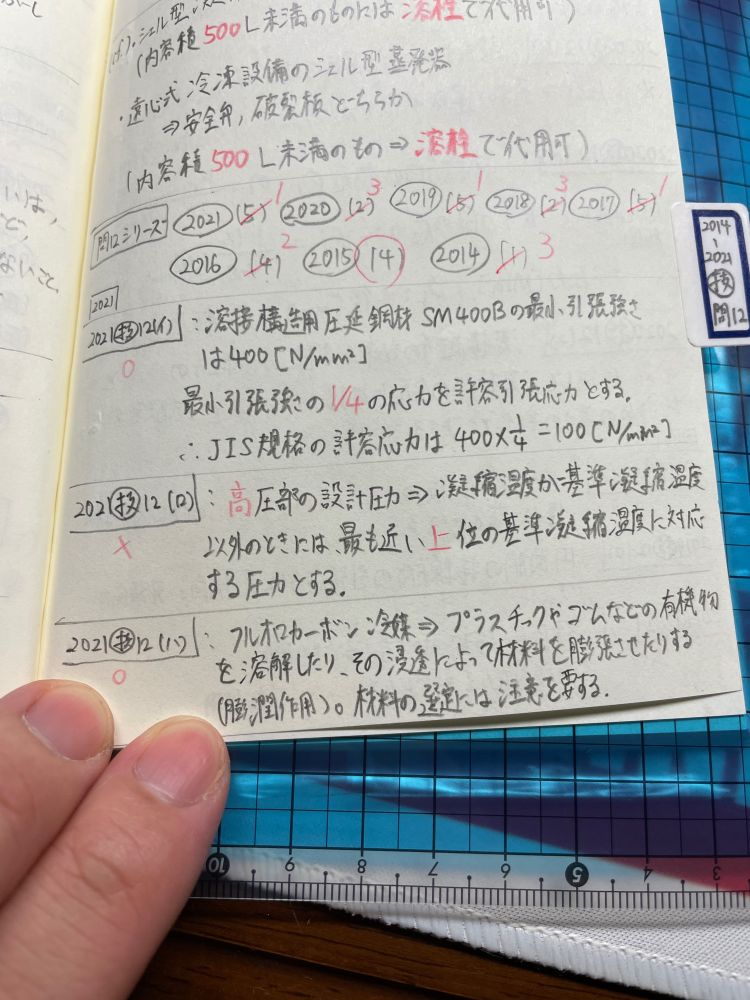 (内容積500L未満のものには溶栓で代用可)
・遠心式冷凍設備のシェル型蒸発器
⇒安全弁,破裂板どちらか
(内容積500L未満のもの⇒溶栓で代用可)
問12シリーズ 2021 (5) 1 2020 (2) 3 2019 (5) 1 2018 (2) 3 2017 (5) 1
2016 (4) 2 2015 (4) 2014 (1) 3
2021
2021(技)12(イ) : 溶接構造用圧延鋼材 SM400Bの最小引張強さ
○ は400[N/mm²]
最小引張強さの1/4の応力を許容引張応力とする。
∴JIS規格の許容応力は 400×1/4=100[N/mm²]
2021(技)12(ロ) : 高圧部の設計圧力⇒凝縮温度が基準凝縮温度
× 以外のときには、最も近い上位の基準凝縮温度に対応
する圧力とする。
2021(技)12(ハ) : フルオロカーボン冷媒⇒プラスチックやゴムなどの有機物
○ を溶解したり、その浸透によって材料を膨張させたりする
(膨潤作用)。材料の選定には注意を要する。
2014
~
2021
(技)
問12
10 9 8 7 6 5 4 3